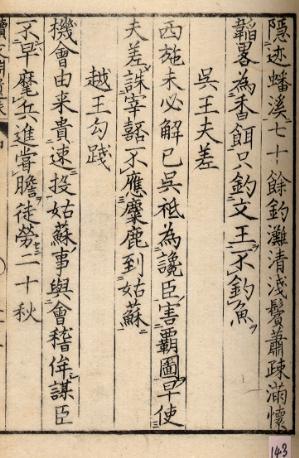 隱迹蟠溪七十餘釣灘清淺鬢蕭疎滿懷
韜畧為香餌只釣文王不釣魚
吳王夫差
西施未必解已吳祗為讒臣害覇圖早使
夫差誅宰嚭不應麋鹿到姑蘇
越王勾踐
機會由来貴速投姑蘇事與會稽侔謀臣
不早麾兵進甞膽徒勞二十秋
143